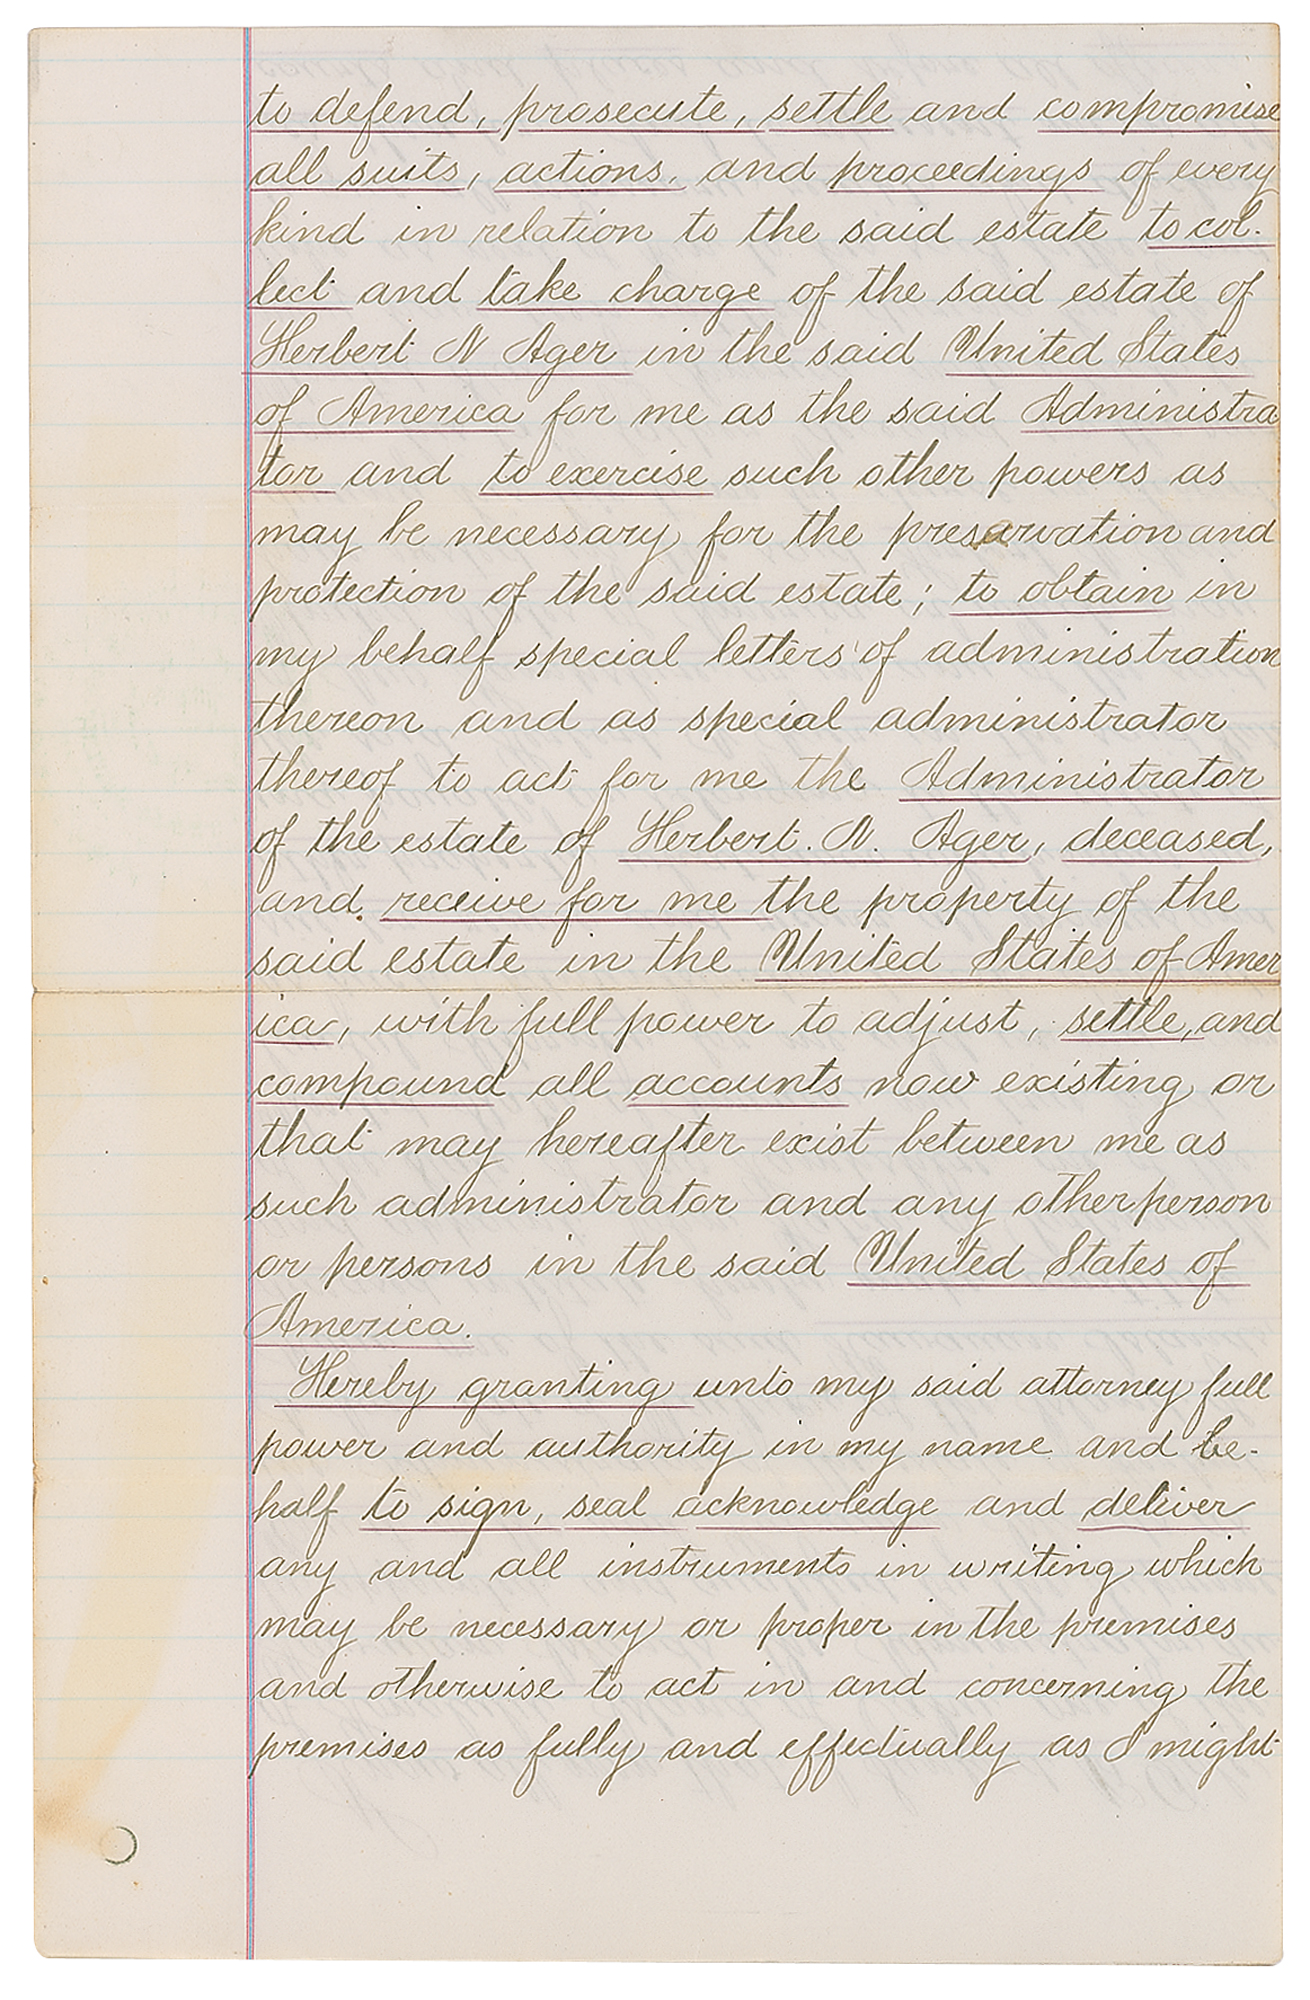 to defend, prosecute, settle and compromise
all suits, actions, and proceedings of every
kind in relation to the said estate to col-
lect and take charge of the said estate of
Herbert N Ager in the said United States
of America for me as the said Administra
tor and to exercise such other powers as
may be necessary for the presarvation and
protection of the said estate; to obtain in
my behalf special letters of administration
thereon and as special administrator
thereof to act for me the Administrator
of the estate of Herbert. N. Ager, deceased,
and. receive for me the property of the
said estate in the United States of Amer
ica, with full power to adjust, settle, and
compound all accounts now existing or
that may hereafter exist between me as
such administrator and any other person
or persons in the said United States of
America.
Hereby granting unto my said attorney full
power and authority in my name and be-
half to sign, seal acknowledge and deliver
any and all instruments in writing which
may be necessary or proper in the premises
and otherwise to act in and concerning the
premises as fully and effectually as I might